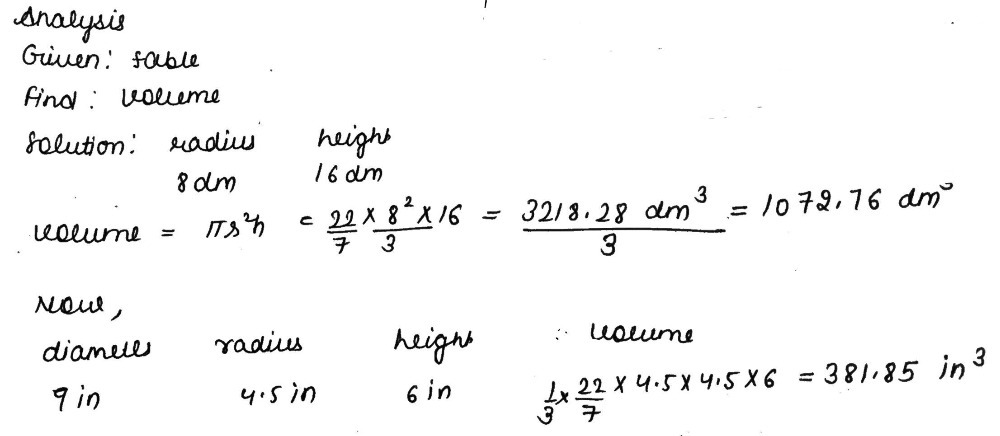 Analysis
Given: table
Find: volume
Solution: radius height
8 dm 16 dm
volume = πr²h = 22/7 × 8²/3 × 16 = 3218.28 dm³/3 = 1072.76 dm³
Now,
diameter radius height ∴ volume
9 in 4.5 in 6 in 1/3 × 22/7 × 4.5 × 4.5 × 6 = 381.85 in³